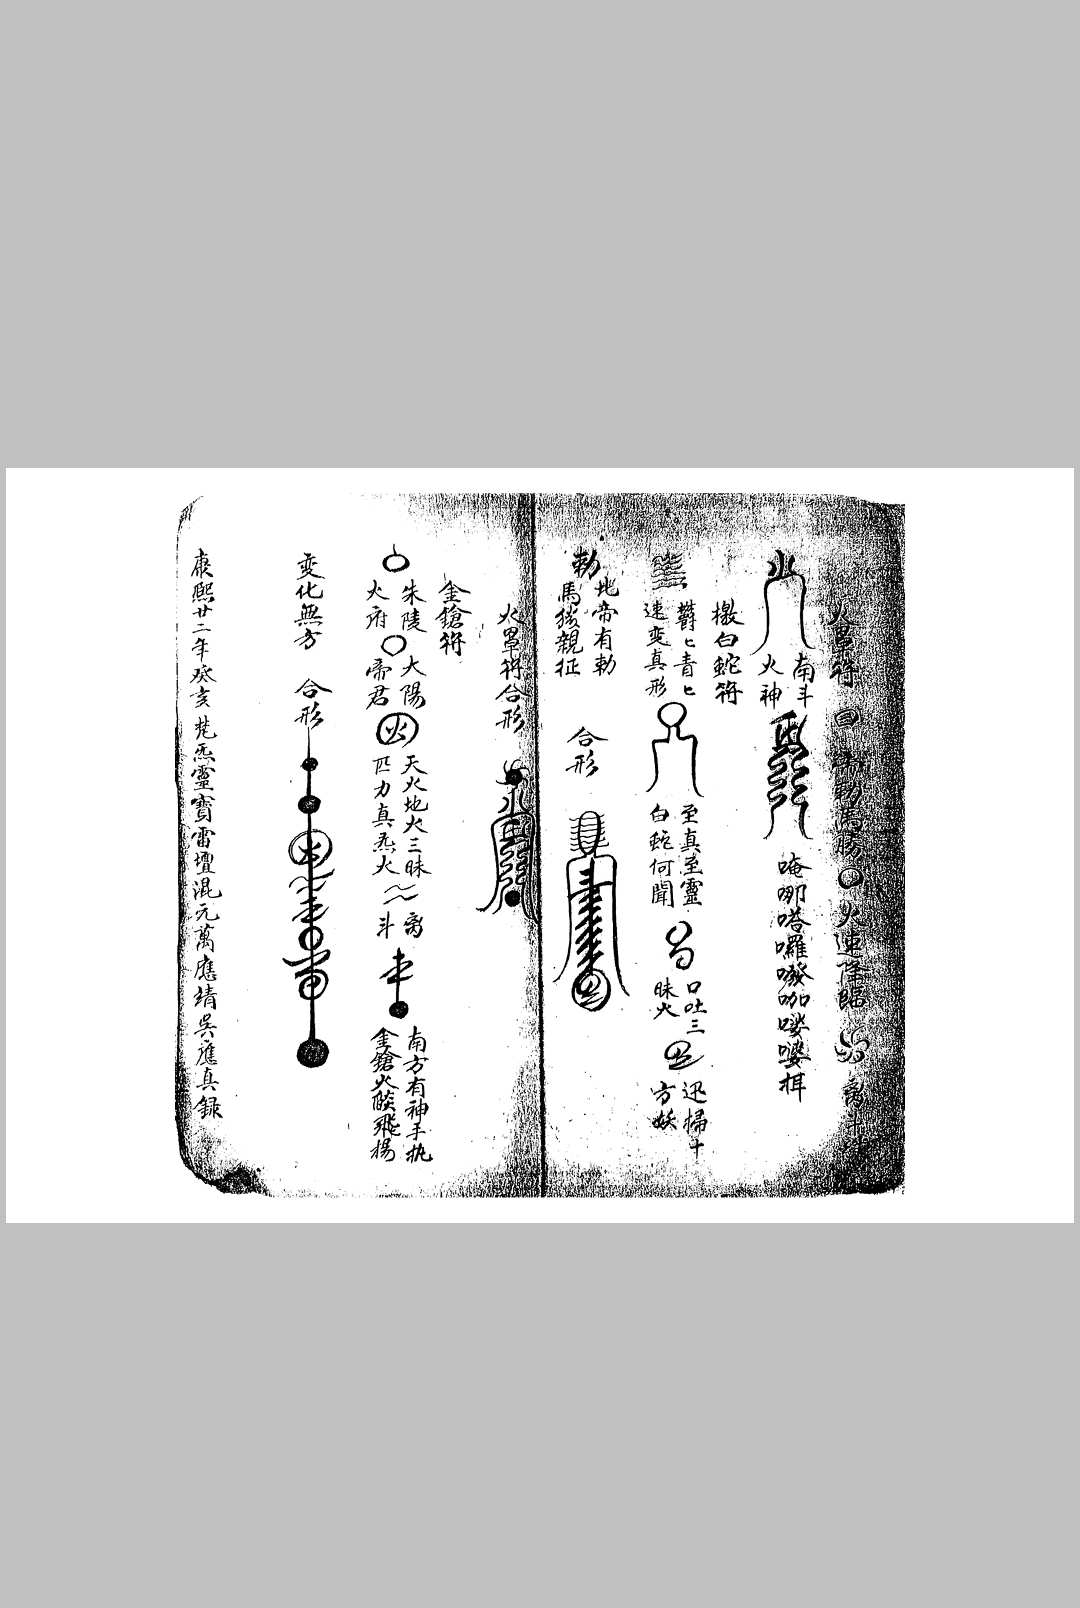 火罩符
勅馬勝
火速降臨
南斗
火神
唵哪嗒囉㗶咖㗲㗲㖇
檄白蛇符
欝匕青匕
速变真形
至真至靈
白蛇何聞
口吐三
昧火
迅掃十
方妖
地帝有勅
勅
馬猨親征
合形
火罩符合形
金鎗符
朱陵
火府
太陽
帝君
天火地火三昧
匹力真炁火
斗
南方有神手执
金鎗火燄飛揚
变化無方
合形
康熙廿二年癸亥梵炁靈寶雷壇混元萬應靖吳應真録